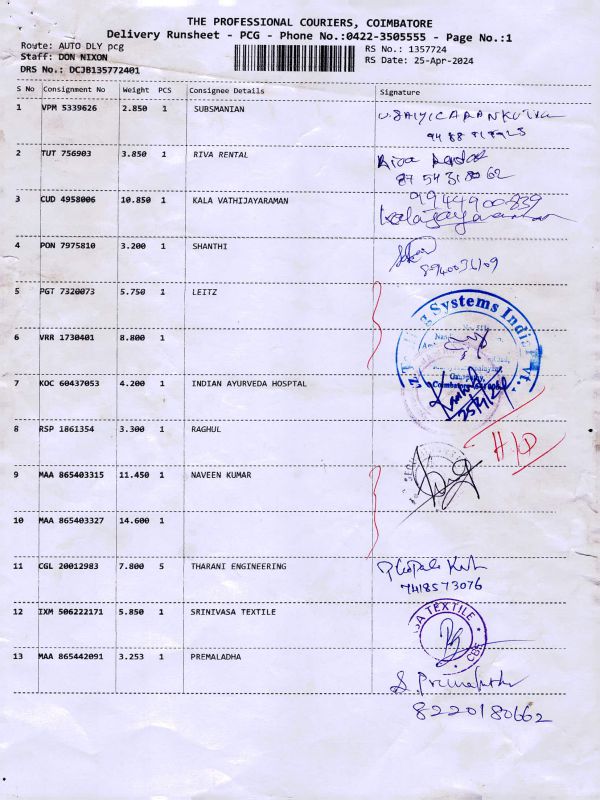 THE PROFESSIONAL COURIERS, COIMBATORE
Delivery Runsheet - PCG - Phone No.:0422-3505555 - Page No.:1
Route: AUTO DLY pcg
RS No.: 1357724
Staff: DON NIXON
RS Date: 25-Apr-2024
DRS No.: DCJB135772401
S No Consignment No Weight PCS Consignee Details Signature
1 VPM 5339626 2.850 1 SUBSMANIAN
2 TUT 756903 3.850 1 RIVA RENTAL
8754318062
3 CUD 4958006 10.850 1 KALA VATHIJAYARAMAN
9944900839
Kalajayaraman
4 PON 7975810 3.200 1 SHANTHI
5 PGT 7320073 5.750 1 LEITZ
Systems India Pvt.
6 VRR 1730401 8.800 1
7 KOC 60437053 4.200 1 INDIAN AYURVEDA HOSPTAL
Coimbatore
25/4/24
8 RSP 1861354 3.300 1 RAGHUL
H/D
9 MAA 865403315 11.450 1 NAVEEN KUMAR
10 MAA 865403327 14.600 1
11 CGL 20012983 7.800 5 THARANI ENGINEERING
7418573076
12 IXM 506222171 5.850 1 SRINIVASA TEXTILE
SA TEXTILE
CBE
13 MAA 865442091 3.253 1 PREMALADHA
8220180662